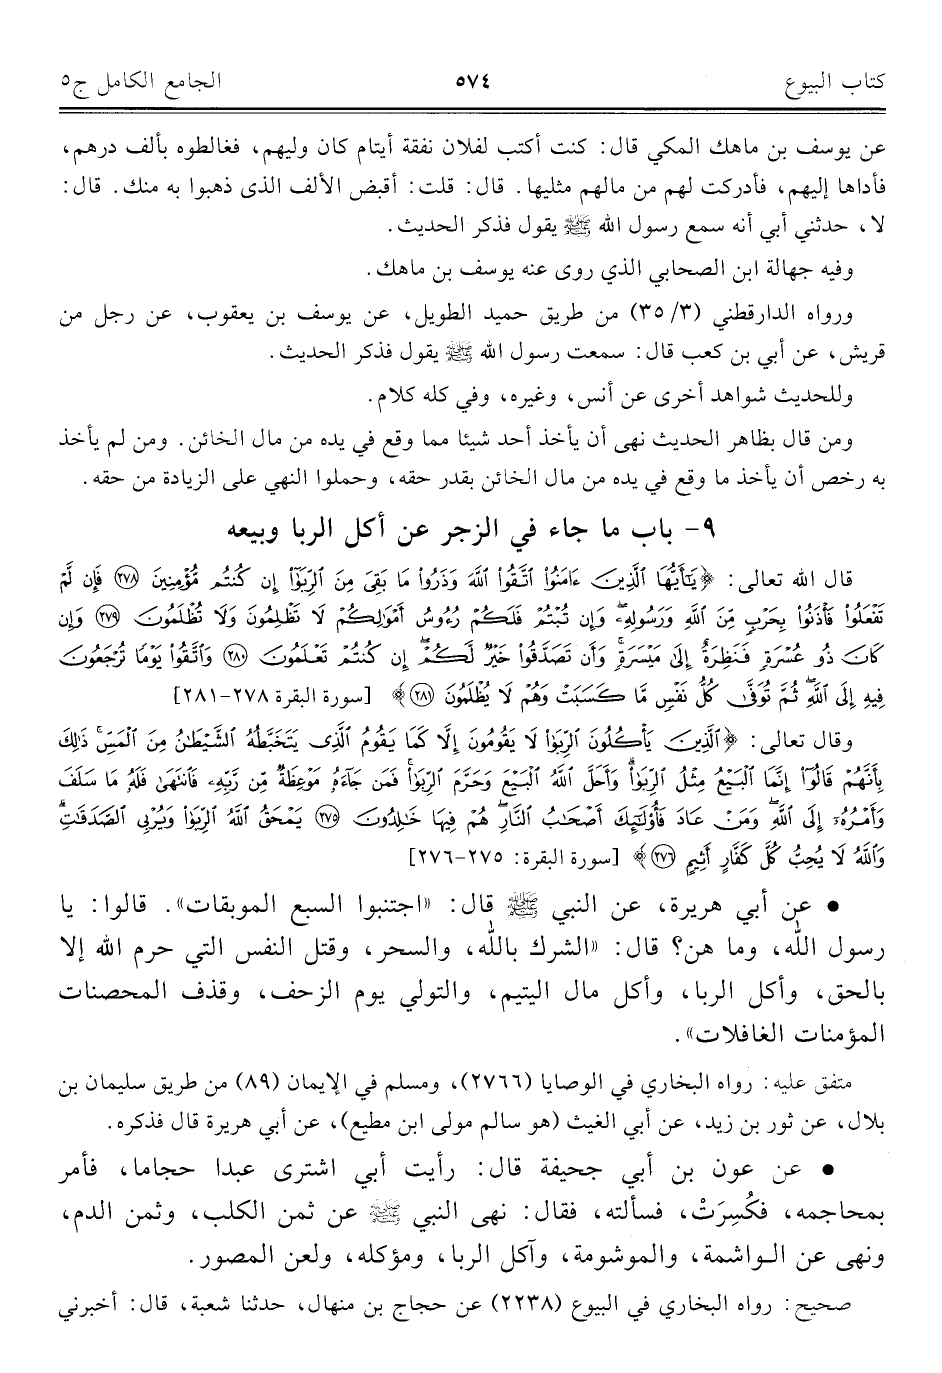 كتاب البيوع ٥٧٤ الجامع الكامل ج٥
عن يوسف بن ماهك المكي قال: كنت أكتب لفلان نفقة أيتام كان وليهم، فغالطوه بألف درهم،
فأداها إليهم، فأدركت لهم من مالهم مثليها. قال: قلت: أقبض الألف الذى ذهبوا به منك. قال:
لا، حدثني أبي أنه سمع رسول الله ﷺ يقول فذكر الحديث.
وفيه جهالة ابن الصحابي الذي روى عنه يوسف بن ماهك.
ورواه الدارقطني (٣/ ٣٥) من طريق حميد الطويل، عن يوسف بن يعقوب، عن رجل من
قريش، عن أبي بن كعب قال: سمعت رسول الله ﷺ يقول فذكر الحديث.
وللحديث شواهد أخرى عن أنس، وغيره، وفي كله كلام.
ومن قال بظاهر الحديث نهى أن يأخذ أحد شيئا مما وقع في يده من مال الخائن. ومن لم يأخذ
به رخص أن يأخذ ما وقع في يده من مال الخائن بقدر حقه، وحملوا النهي على الزيادة من حقه.
٩- باب ما جاء في الزجر عن أكل الربا وبيعه
قال الله تعالى: ﴿يَٰٓأَيُّهَا ٱلَّذِينَ ءَامَنُوا۟ ٱتَّقُوا۟ ٱللَّهَ وَذَرُوا۟ مَا بَقِىَ مِنَ ٱلرِّبَوٰٓا۟ إِن كُنتُم مُّؤْمِنِينَ ٢٧٨ فَإِن لَّمْ
تَفْعَلُوا۟ فَأْذَنُوا۟ بِحَرْبٍ مِّنَ ٱللَّهِ وَرَسُولِهِۦ ۖ وَإِن تُبْتُمْ فَلَكُمْ رُءُوسُ أَمْوَٰلِكُمْ لَا تَظْلِمُونَ وَلَا تُظْلَمُونَ ٢٧٩ وَإِن
كَانَ ذُو عُسْرَةٍ فَنَظِرَةٌ إِلَىٰ مَيْسَرَةٍ ۚ وَأَن تَصَدَّقُوا۟ خَيْرٌ لَّكُمْ ۖ إِن كُنتُمْ تَعْلَمُونَ ٢٨٠ وَٱتَّقُوا۟ يَوْمًا تُرْجَعُونَ
فِيهِ إِلَى ٱللَّهِ ۖ ثُمَّ تُوَفَّىٰ كُلُّ نَفْسٍ مَّا كَسَبَتْ وَهُمْ لَا يُظْلَمُونَ ٢٨١﴾ [سورة البقرة ٢٧٨-٢٨١]
وقال تعالى: ﴿ٱلَّذِينَ يَأْكُلُونَ ٱلرِّبَوٰا۟ لَا يَقُومُونَ إِلَّا كَمَا يَقُومُ ٱلَّذِى يَتَخَبَّطُهُ ٱلشَّيْطَٰنُ مِنَ ٱلْمَسِّ ۚ ذَٰلِكَ
بِأَنَّهُمْ قَالُوٓا۟ إِنَّمَا ٱلْبَيْعُ مِثْلُ ٱلرِّبَوٰا۟ ۗ وَأَحَلَّ ٱللَّهُ ٱلْبَيْعَ وَحَرَّمَ ٱلرِّبَوٰا۟ ۚ فَمَن جَآءَهُۥ مَوْعِظَةٌ مِّن رَّبِّهِۦ فَٱنتَهَىٰ فَلَهُۥ مَا سَلَفَ
وَأَمْرُهُۥٓ إِلَى ٱللَّهِ ۖ وَمَنْ عَادَ فَأُو۟لَٰٓئِكَ أَصْحَٰبُ ٱلنَّارِ ۖ هُمْ فِيهَا خَٰلِدُونَ ٢٧٥ يَمْحَقُ ٱللَّهُ ٱلرِّبَوٰا۟ وَيُرْبِى ٱلصَّدَقَٰتِ ۗ
وَٱللَّهُ لَا يُحِبُّ كُلَّ كَفَّارٍ أَثِيمٍ ٢٧٦﴾ [سورة البقرة: ٢٧٥-٢٧٦]
• عن أبي هريرة، عن النبي ﷺ قال: «اجتنبوا السبع الموبقات». قالوا: يا
رسول الله، وما هن؟ قال: «الشرك بالله، والسحر، وقتل النفس التي حرم الله إلا
بالحق، وأكل الربا، وأكل مال اليتيم، والتولي يوم الزحف، وقذف المحصنات
المؤمنات الغافلات».
متفق عليه: رواه البخاري في الوصايا (٢٧٦٦)، ومسلم في الإيمان (٨٩) من طريق سليمان بن
بلال، عن ثور بن زيد، عن أبي الغيث (هو سالم مولى ابن مطيع)، عن أبي هريرة قال فذكره.
• عن عون بن أبي جحيفة قال: رأيت أبي اشترى عبدا حجاما، فأمر
بمحاجمه، فكُسِرَتْ، فسألته، فقال: نهى النبي ﷺ عن ثمن الكلب، وثمن الدم،
ونهى عن الواشمة، والموشومة، وآكل الربا، ومؤكله، ولعن المصور.
صحيح: رواه البخاري في البيوع (٢٢٣٨) عن حجاج بن منهال، حدثنا شعبة، قال: أخبرني